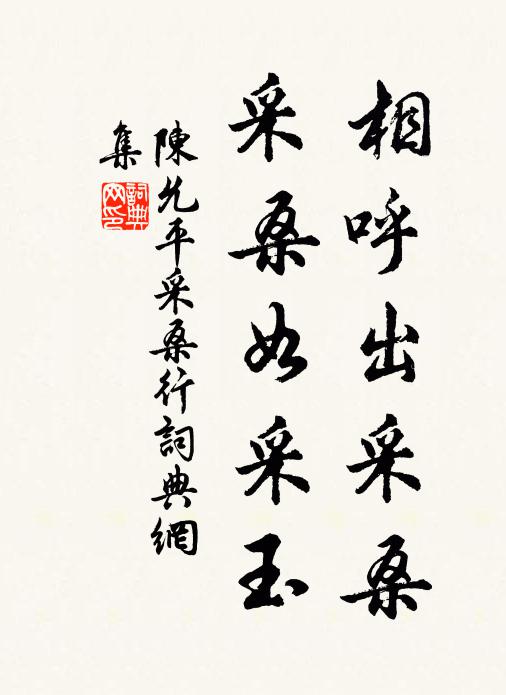 相呼出采桑
采桑如采玉
陳允平采桑行詞典網
集
詞典網印